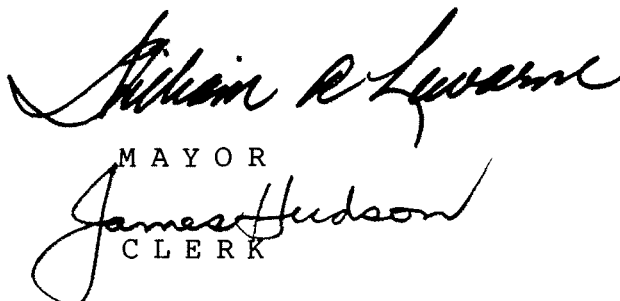 William R Lewarne
MAYOR
James Hudson
CLERK